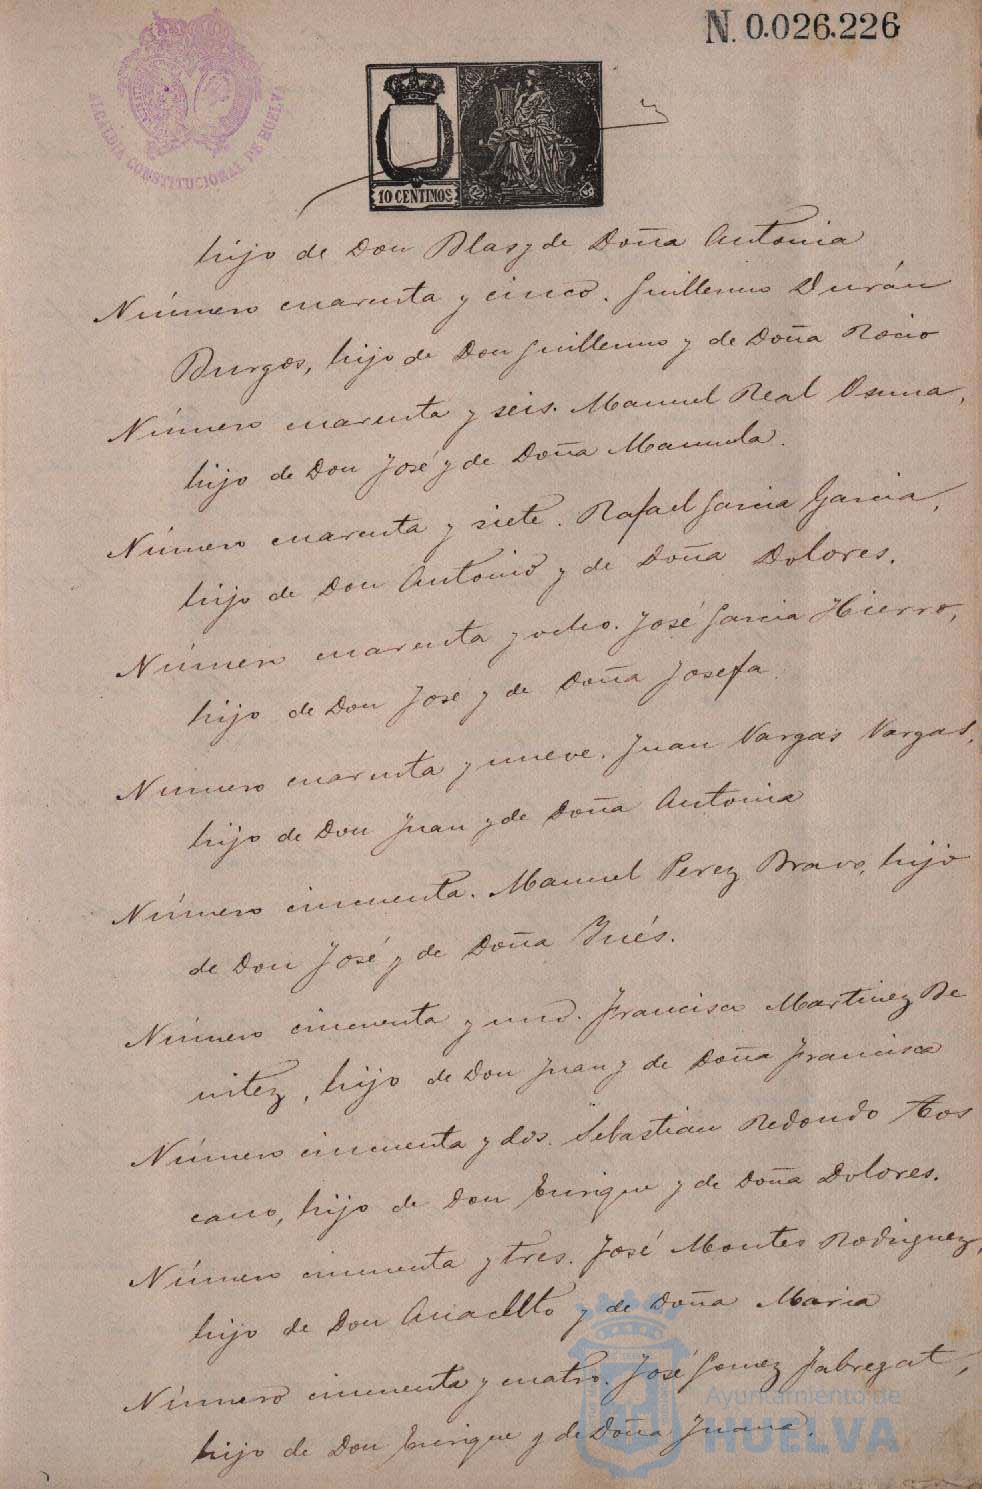 N. 0.026.226
ALCALDIA CONSTITUCIONAL DE HUELVA
10 CENTIMOS
hijo de Don Blas y de Doña Antonia
Número cuarenta y cinco. Guillermo Durán
Burgos, hijo de Don Guillermo y de Doña Rocio
Número cuarenta y seis. Manuel Real Osuna,
hijo de Don José y de Doña Manuela.
Número cuarenta y siete. Rafael Garcia Garcia,
hijo de Don Antonio y de Doña Dolores.
Número cuarenta y ocho. José Garcia Hierro,
hijo de Don Jose y de Doña Josefa
Numero cuarenta y nueve. Juan Vargas Vargas,
hijo de Don Juan y de Doña Antonia
Número cincuenta. Manuel Perez Bravo, hijo
de Don José y de Doña Inés.
Número cincuenta y uno. Francisco Martinez Be
nitez, hijo de Don Juan y de Doña Francisca
Número cincuenta y dos. Sebastian Redondo Tos
cano, hijo de Don Enrique y de Doña Dolores.
Número cincuenta y tres. José Montes Rodriguez,
hijo de Don Anacleto y de Doña Maria
Número cincuenta y cuatro. José Gomez Fabregat,
hijo de Don Enrique y de Doña Juana.
Ayuntamiento de
HUELVA